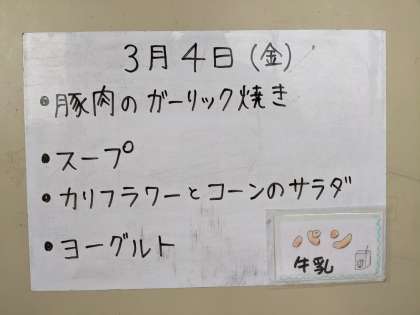 3月4日(金)
•豚肉のガーリック焼き
•スープ
•カリフラワーとコーンのサラダ
•ヨーグルト
パン
牛乳